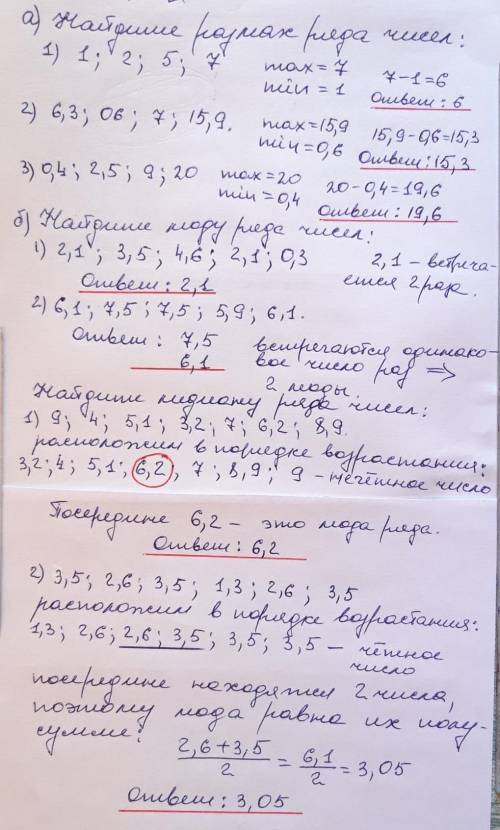 а) Найдите размах ряда чисел:
1) 1; 2; 5; 7 max = 7 7-1=6
min = 1 Ответ: 6
2) 6,3; 06; 7; 15,9. max=15,9 15,9-0,6=15,3
min=0,6 Ответ: 15,3
3) 0,4; 2,5; 9; 20 max=20 20-0,4=19,6
min=0,4 Ответ: 19,6
б) Найдите моду ряда чисел:
1) 2,1; 3,5; 4,6; 2,1; 0,3 2,1 - встреча-
Ответ: 2,1 ется 2 раза.
2) 6,1; 7,5; 7,5; 5,9; 6,1.
Ответ: 7,5 встречаются одинако-
6,1 вое число раз ⇒
2 моды.
Найдите медиану ряда чисел:
1) 9; 4; 5,1; 3,2; 7; 6,2; 8,9.
расположим в порядке возрастания:
3,2; 4; 5,1; 6,2; 7; 8,9; 9 - нечётное число
Посередине 6,2 - это мода ряда.
Ответ: 6,2
2) 3,5; 2,6; 3,5; 1,3; 2,6; 3,5
расположим в порядке возрастания:
1,3; 2,6; 2,6; 3,5; 3,5; 3,5 - чётное
число
посередине находятся 2 числа,
поэтому мода равна их полу-
сумме:
2,6+3,5/2 = 6,1/2 = 3,05
Ответ: 3,05